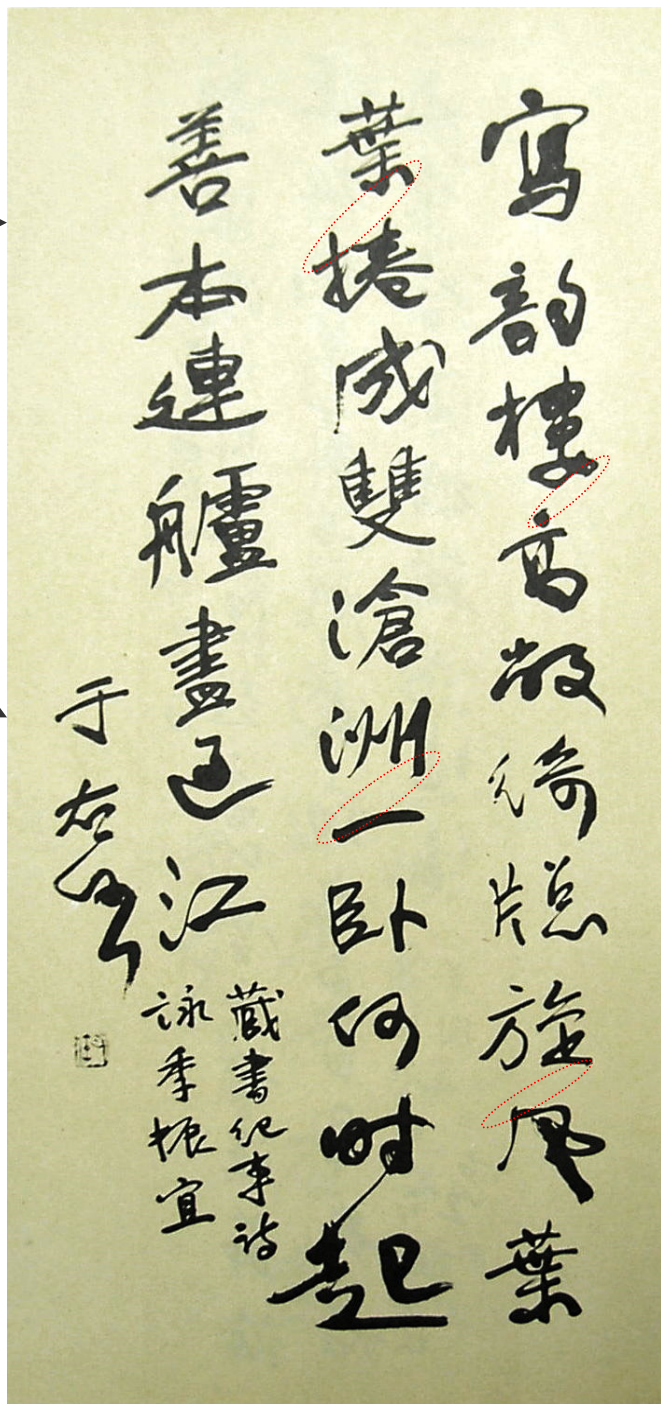 寫韵樓高敞綺牕旋風葉
葉捲成雙滄洲一卧何時起
善本連艫盡過江
藏書紀事詩
詠季振宜
于右任